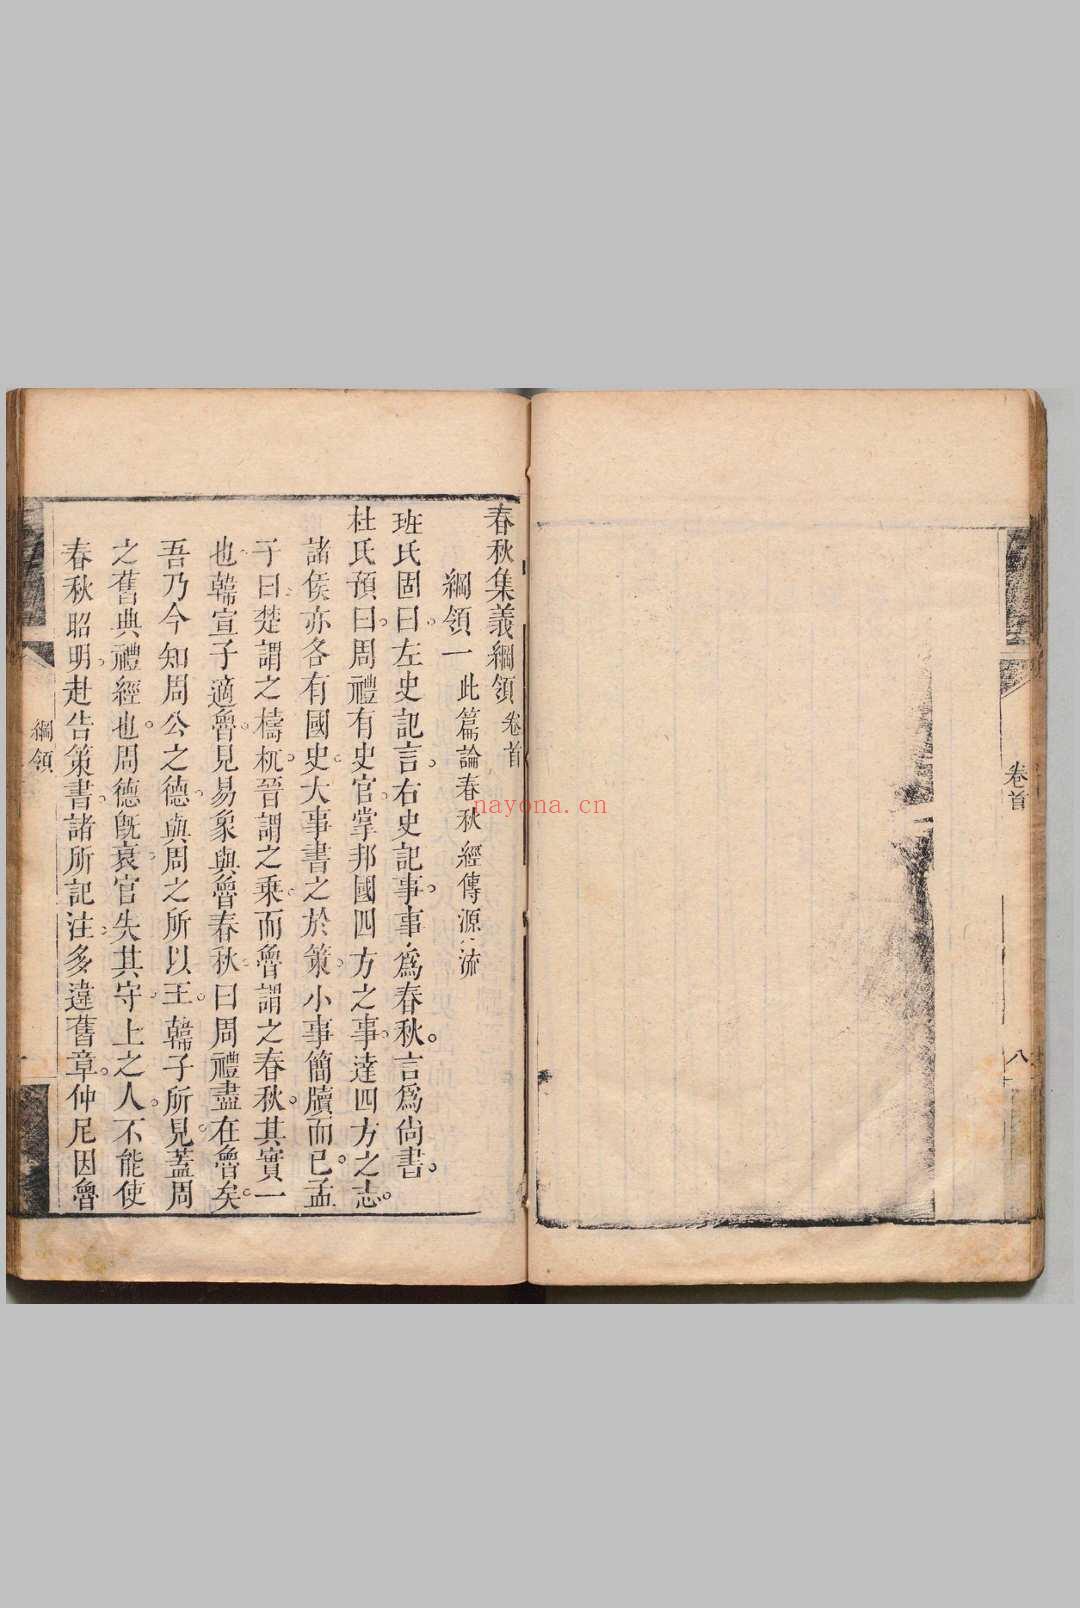 卷首
八
春秋集義綱領 卷首
綱領一 此篇論春秋經傳源流
班氏固曰左史記言右史記事事爲春秋言爲尚書
杜氏預曰周禮有史官掌邦國四方之事達四方之志
諸侯亦各有國史大事書之於策小事簡牘而已孟
子曰楚謂之檮杌晉謂之乘而魯謂之春秋其實一
也韓宣子適魯見易象與魯春秋曰周禮盡在魯矣
吾乃今知周公之德與周之所以王韓子所見蓋周
之舊典禮經也周德旣衰官失其守上之人不能使
春秋昭明赴告策書諸所記注多違舊章仲尼因魯
綱領
nayona.cn